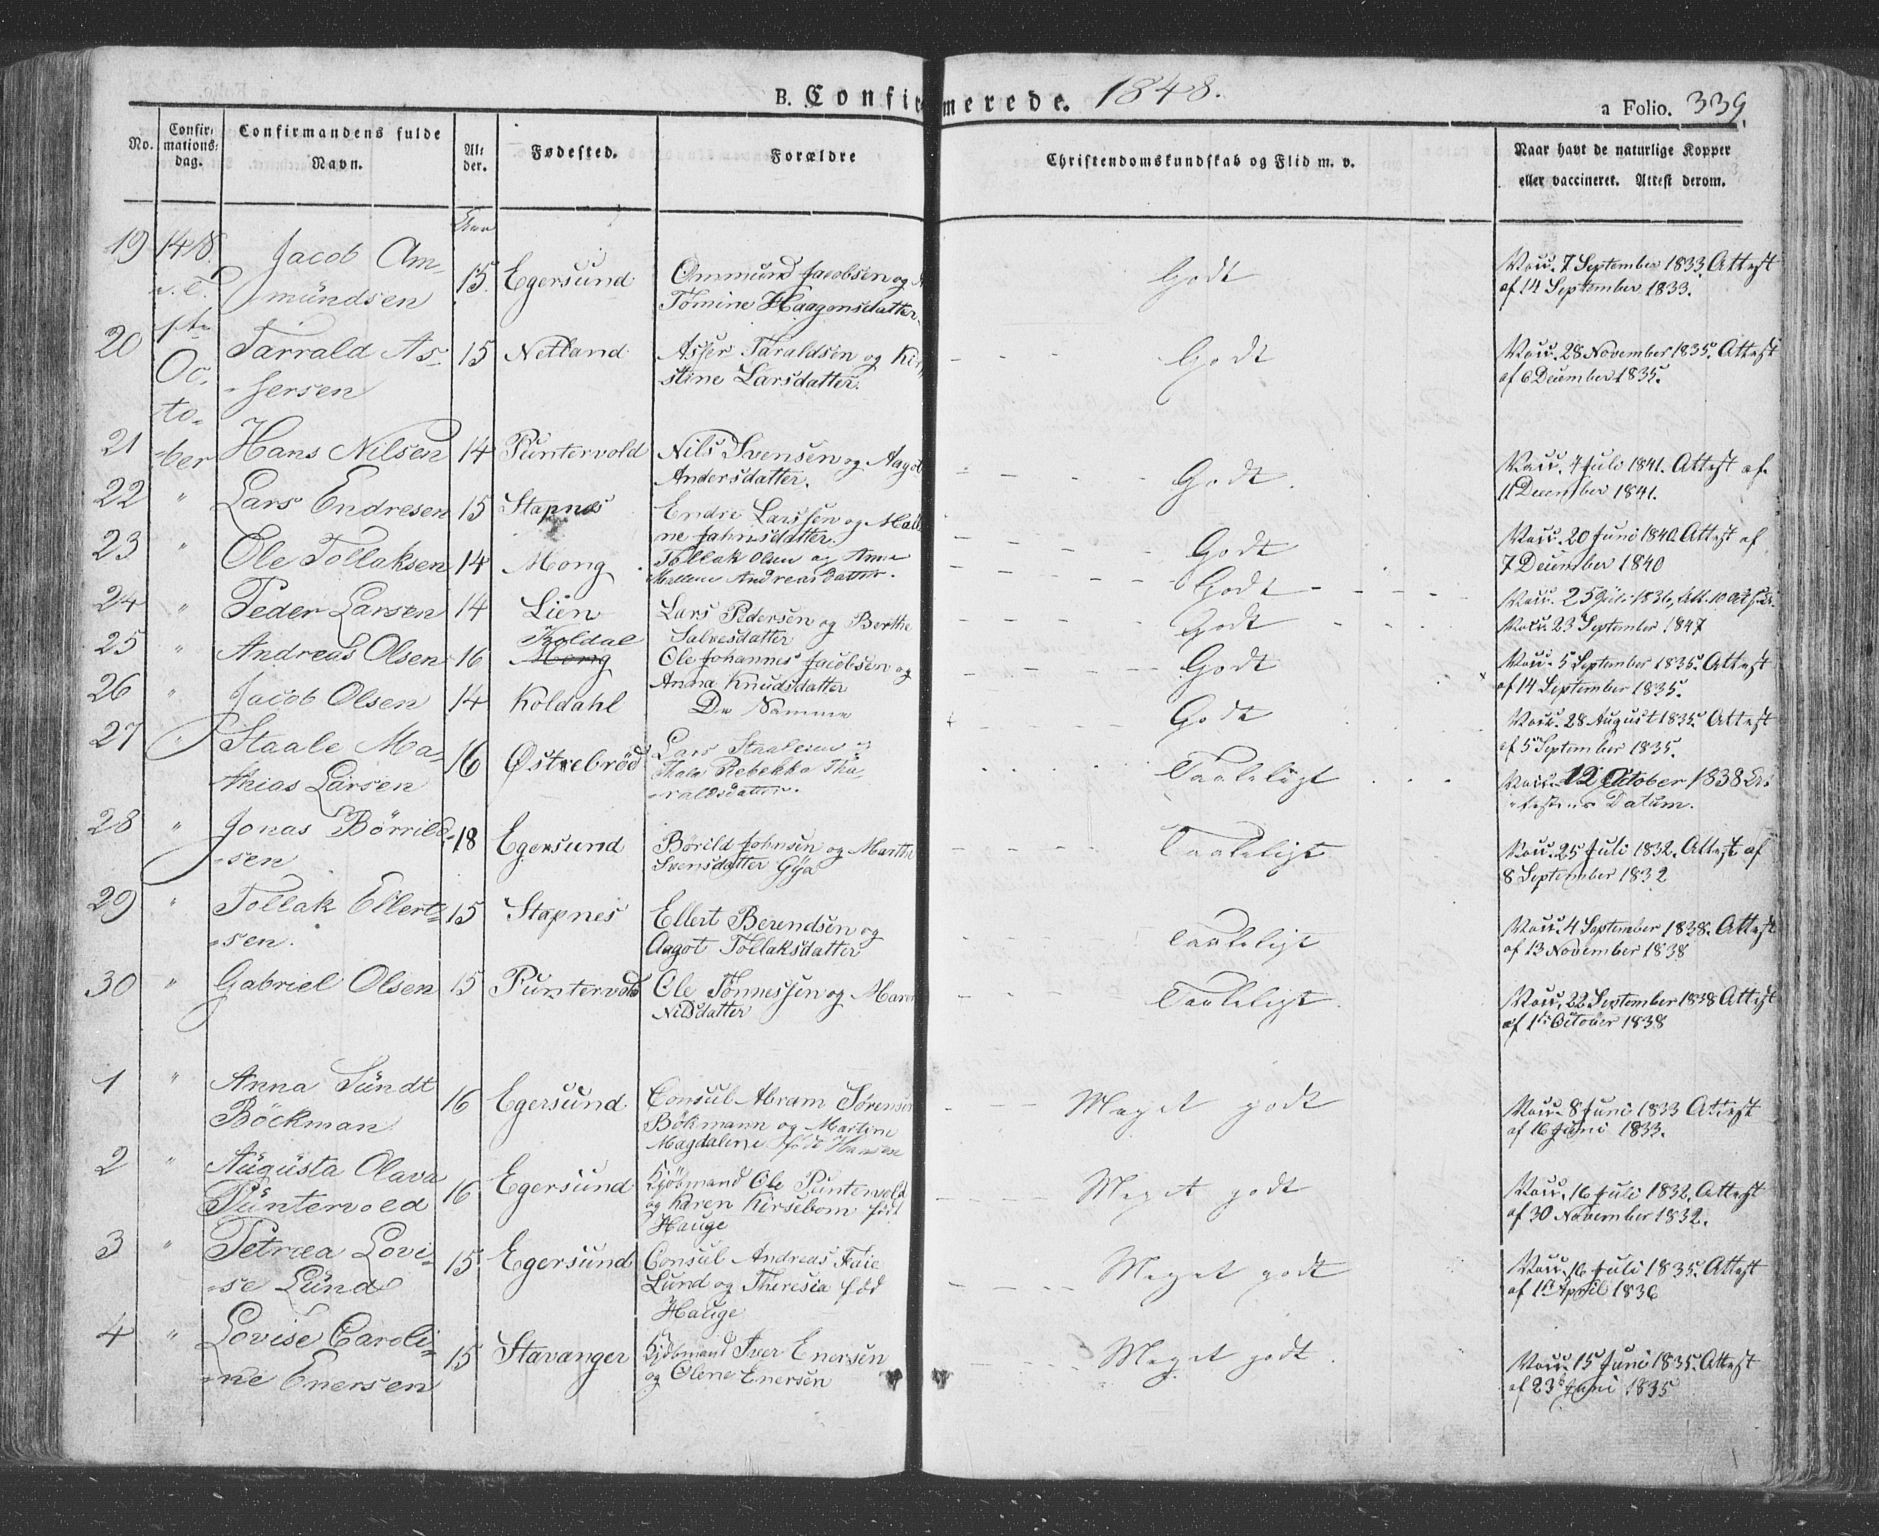 B. Confirmerede. 1848.
a Folio. 339.
No.
Confirmationsdag.
Confirmandens fulde Navn.
Alder.
Fødested.
Forældre
Christendomskundskab og Flid m. v.
Naar havt de naturlige Kopper
eller vaccineret. Attest derom.
Aar
19 Jacob Am- 15. Egersund Ommund Jacobsen og Godt Vacc. 7 September 1833. Attest
mündsen Tomine Haagensdatter. af 14 September 1833.
1ste
20 Tarrald As- 15 Netland Asser Taraldsen og Kir- Godt Vacc. 28 November 1835. Attest
Oc-
sersen stine Larsdatter. af 6 December 1835.
to-
21 ber Hans Nilsen 14 Puntervold Nils Svensen og Aagot Godt. Vacc. 4 Juli 1841. Attest af
Andersdatter. 11 December 1841.
22 " Lars Endresen 15 Stapnes Endre Larssen og Malle- Godt Vacc. 20 Juni 1840 Attest af
ne Jahnsdatter. 7 December 1840
23 " Ole Tollaksen 14 Mong Tollak Olsen og Anna Godt Vacc. 25 Juli 1836,
Mallene Andreasdatter.
24 " Peder Larsen 14 Lien Lars Pedersen og Berthe Godt Vacc. 23 September 1847
Salvesdatter
25 " Andreas Olsen 16 Koldal Mong Ole Johannes Jacobsen og Godt Vacc. 5 September 1835. Attest
Anna Knudsdatter af 14 September 1835.
26 " Jacob Olsen 14 Koldahl De Samme Godt Vacc. 28 August 1835 Attest
af 5 September 1835.
27 " Staale Ma- 16 Østrebröd Lars Staalesen og Taaleligt Vacc. 12 October 1838
thias Larsen Rebekka Tha- Datum.
raldsdatter.
28 " Jonas Börrild- 18 Egersund Börild Johnsen og Marthe Taaleligt Vacc. 25 Juli 1832. Attest af
sen Svensdatter Gya 8 September 1832
29 " Tollak Ellert- 15 Stapnes Ellert Berendsen og Taaleligt Vacc. 4 September 1838. Attest
sen. Aagot Tollaksdatter af 13 November 1838
30 " Gabriel Olsen 15 Puntervold Ole Tönnessen og Maren Taaleligt. Vacc. 22 September 1838 Attest
Nilsdatter af 1ste October 1838
1 " Anna Sündt 16 Egersund Consul Abram Sörensen Meget godt Vacc. 8 Juni 1833 Attest
Böckman Bökmann og Martine af 16 Juni 1833.
Magdaline född Hansen
2 " Augüsta Olava 16 Egersund Kjöbmand Ole Puntervold Meget godt Vacc. 16 Juli 1832. Attest
Püntervold og Karen Kirsebom föd af 30 November 1832.
Hauge
3 " Petræa Lovi- 15 Egersund Consul Andreas Faie Meget godt Vacc. 16 Juli 1835. Attest
se Lünd Lund og Theresia föd af 1ste April 1836
Hauge
4 " Lovise Caroli- 15 Stavanger Kjöbmand Iver Enersen Meget godt. Vacc. 15 Juni 1835. Attest
ne Enersen og Olene Enersen af 23 Juni 1835